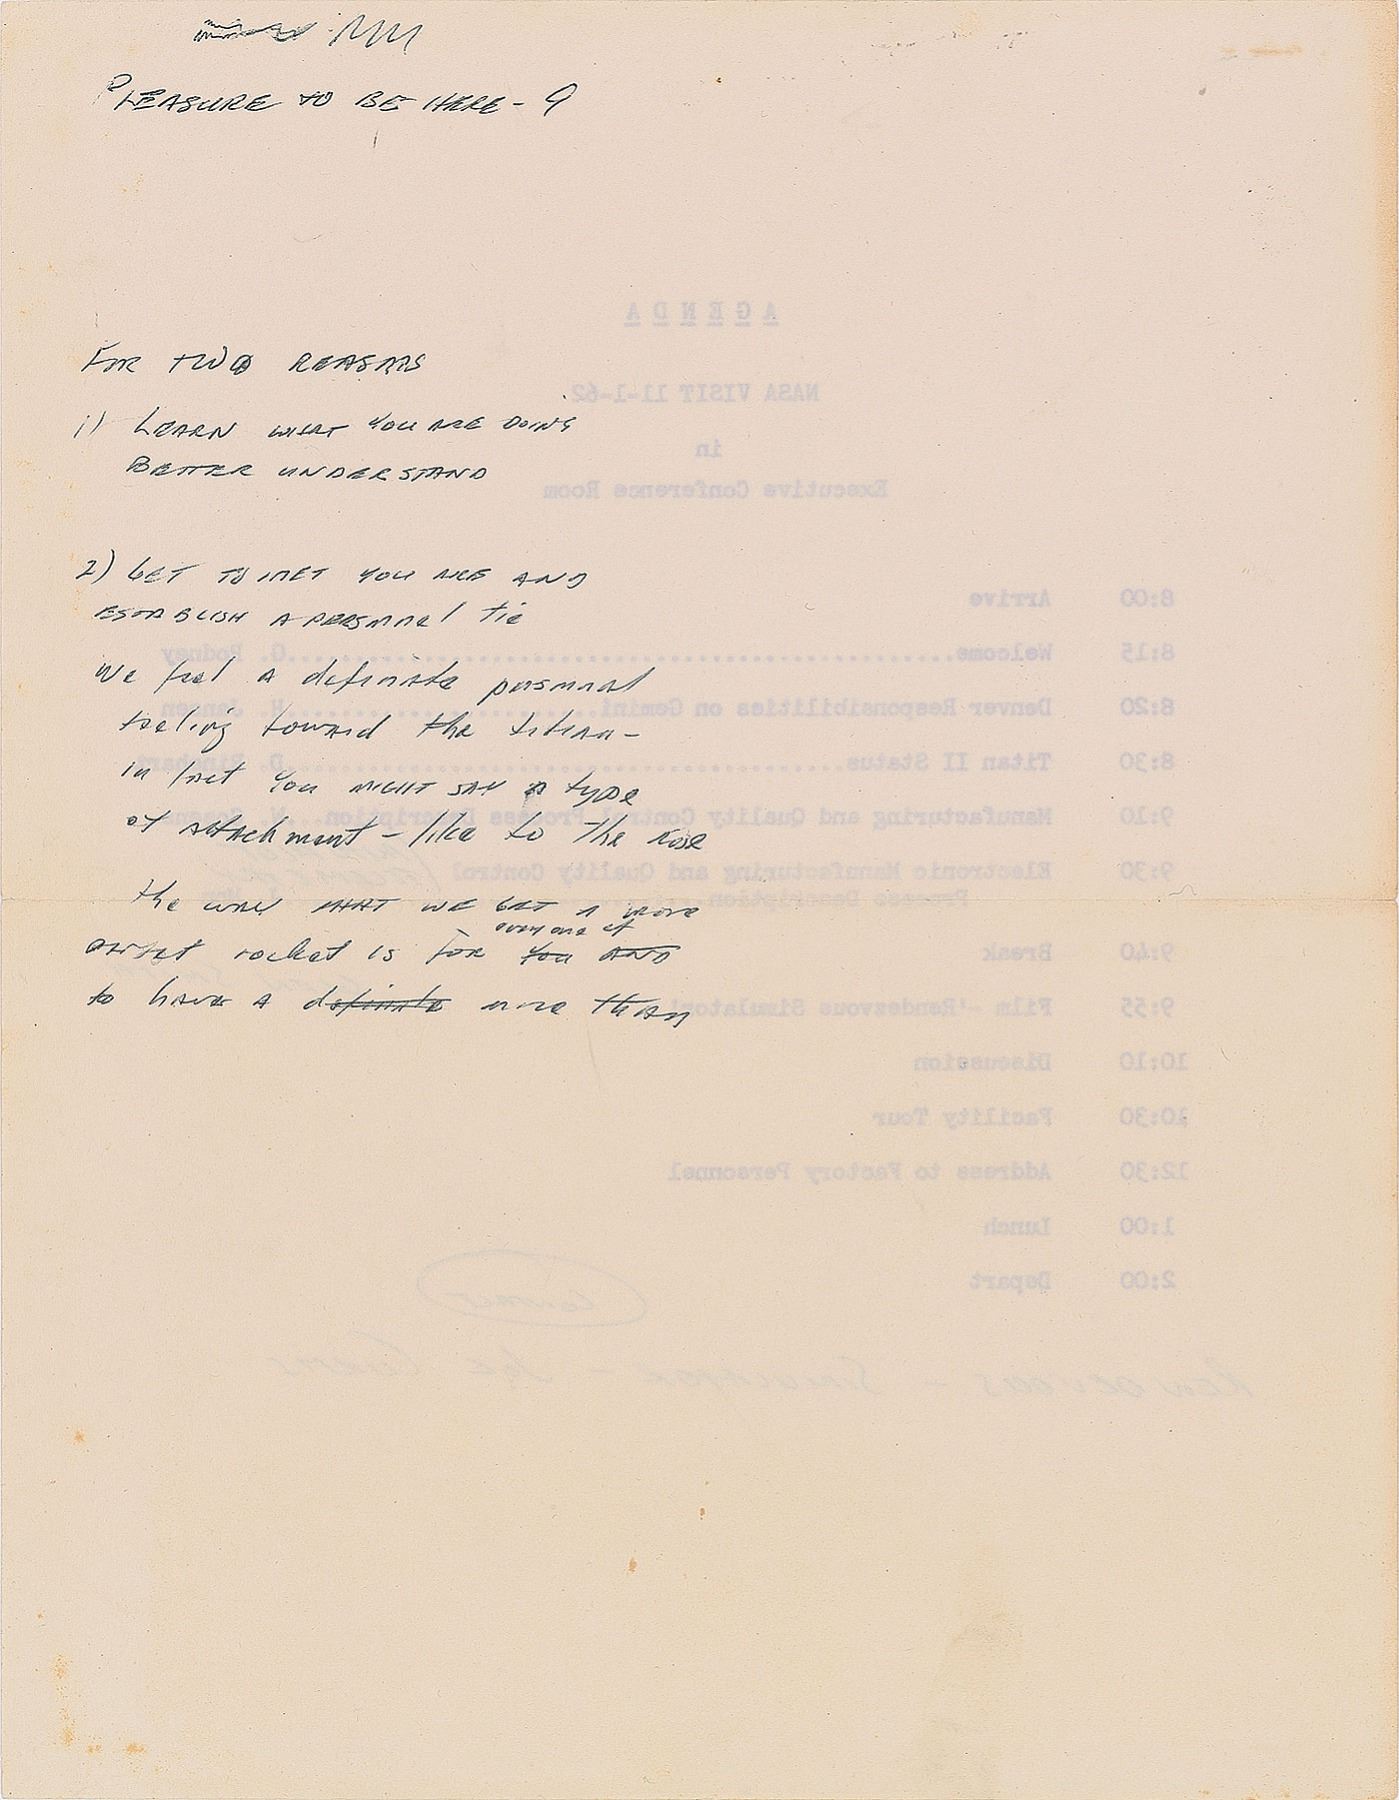 PLEASURE TO BE HERE - 9
FOR TWO REASONS
1) LEARN WHAT YOU ARE DOING
BETTER UNDERSTAND
2) GET TO MET YOU ARE AND
ESTABLISH A PERSONAL tie
We feel a definate personal
feeling toward the titan -
in fact you MIGHT SAY a type
of attachment - like to the nose
the way THAT WE GET a more
everyone of
rocket is for you AND
to have a definate more than
AGENDA
NASA VISIT 11-1-62
in
Executive Conference Room
8:00 Arrive
8:15 Welcome G. Rodney
8:20 Denver Responsibilities on Gemini H. Jansen
8:30 Titan II Status D. Rinehart
9:10 Manufacturing and Quality Control Process Description
9:30 Electronic Manufacturing and Quality Control
Process Description
9:40 Break
9:55 Film - 'Rendezvous Simulator'
10:10 Discussion
10:30 Facility Tour
12:30 Address to Factory Personnel
1:00 Lunch
2:00 Depart